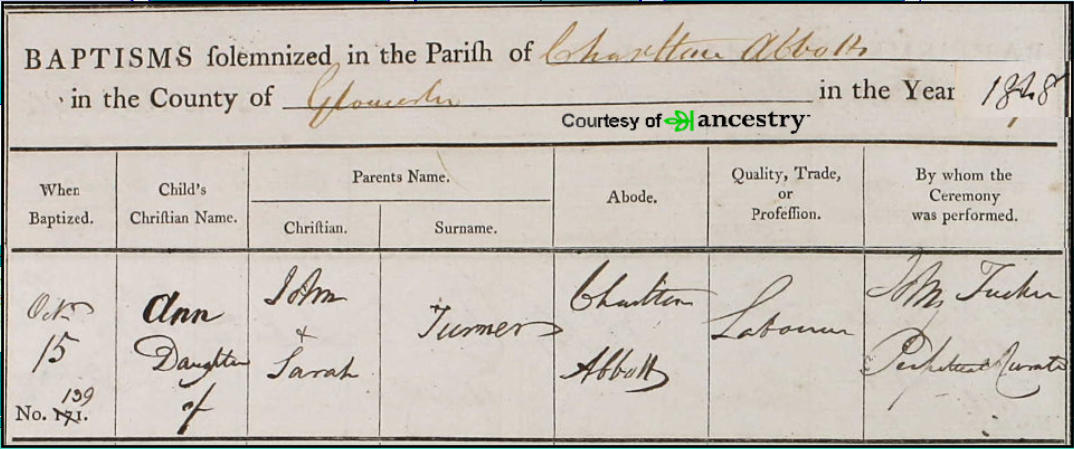 BAPTISMS ſolemnized in the Pariſh of Charlton Abbotts
in the County of Gloucester in the Year 1848
Courtesy of ancestry
When Baptized.
Child's Chriſtian Name.
Parents Name.
Chriſtian.
Surname.
Abode.
Quality, Trade, or Profeſſion.
By whom the Ceremony was performed.
Octr
15
No. 171.
139
Ann
Daughter
of
John
+
Sarah
Turner
Charlton
Abbotts
Labourer
John Tucker
Perpetual Curate